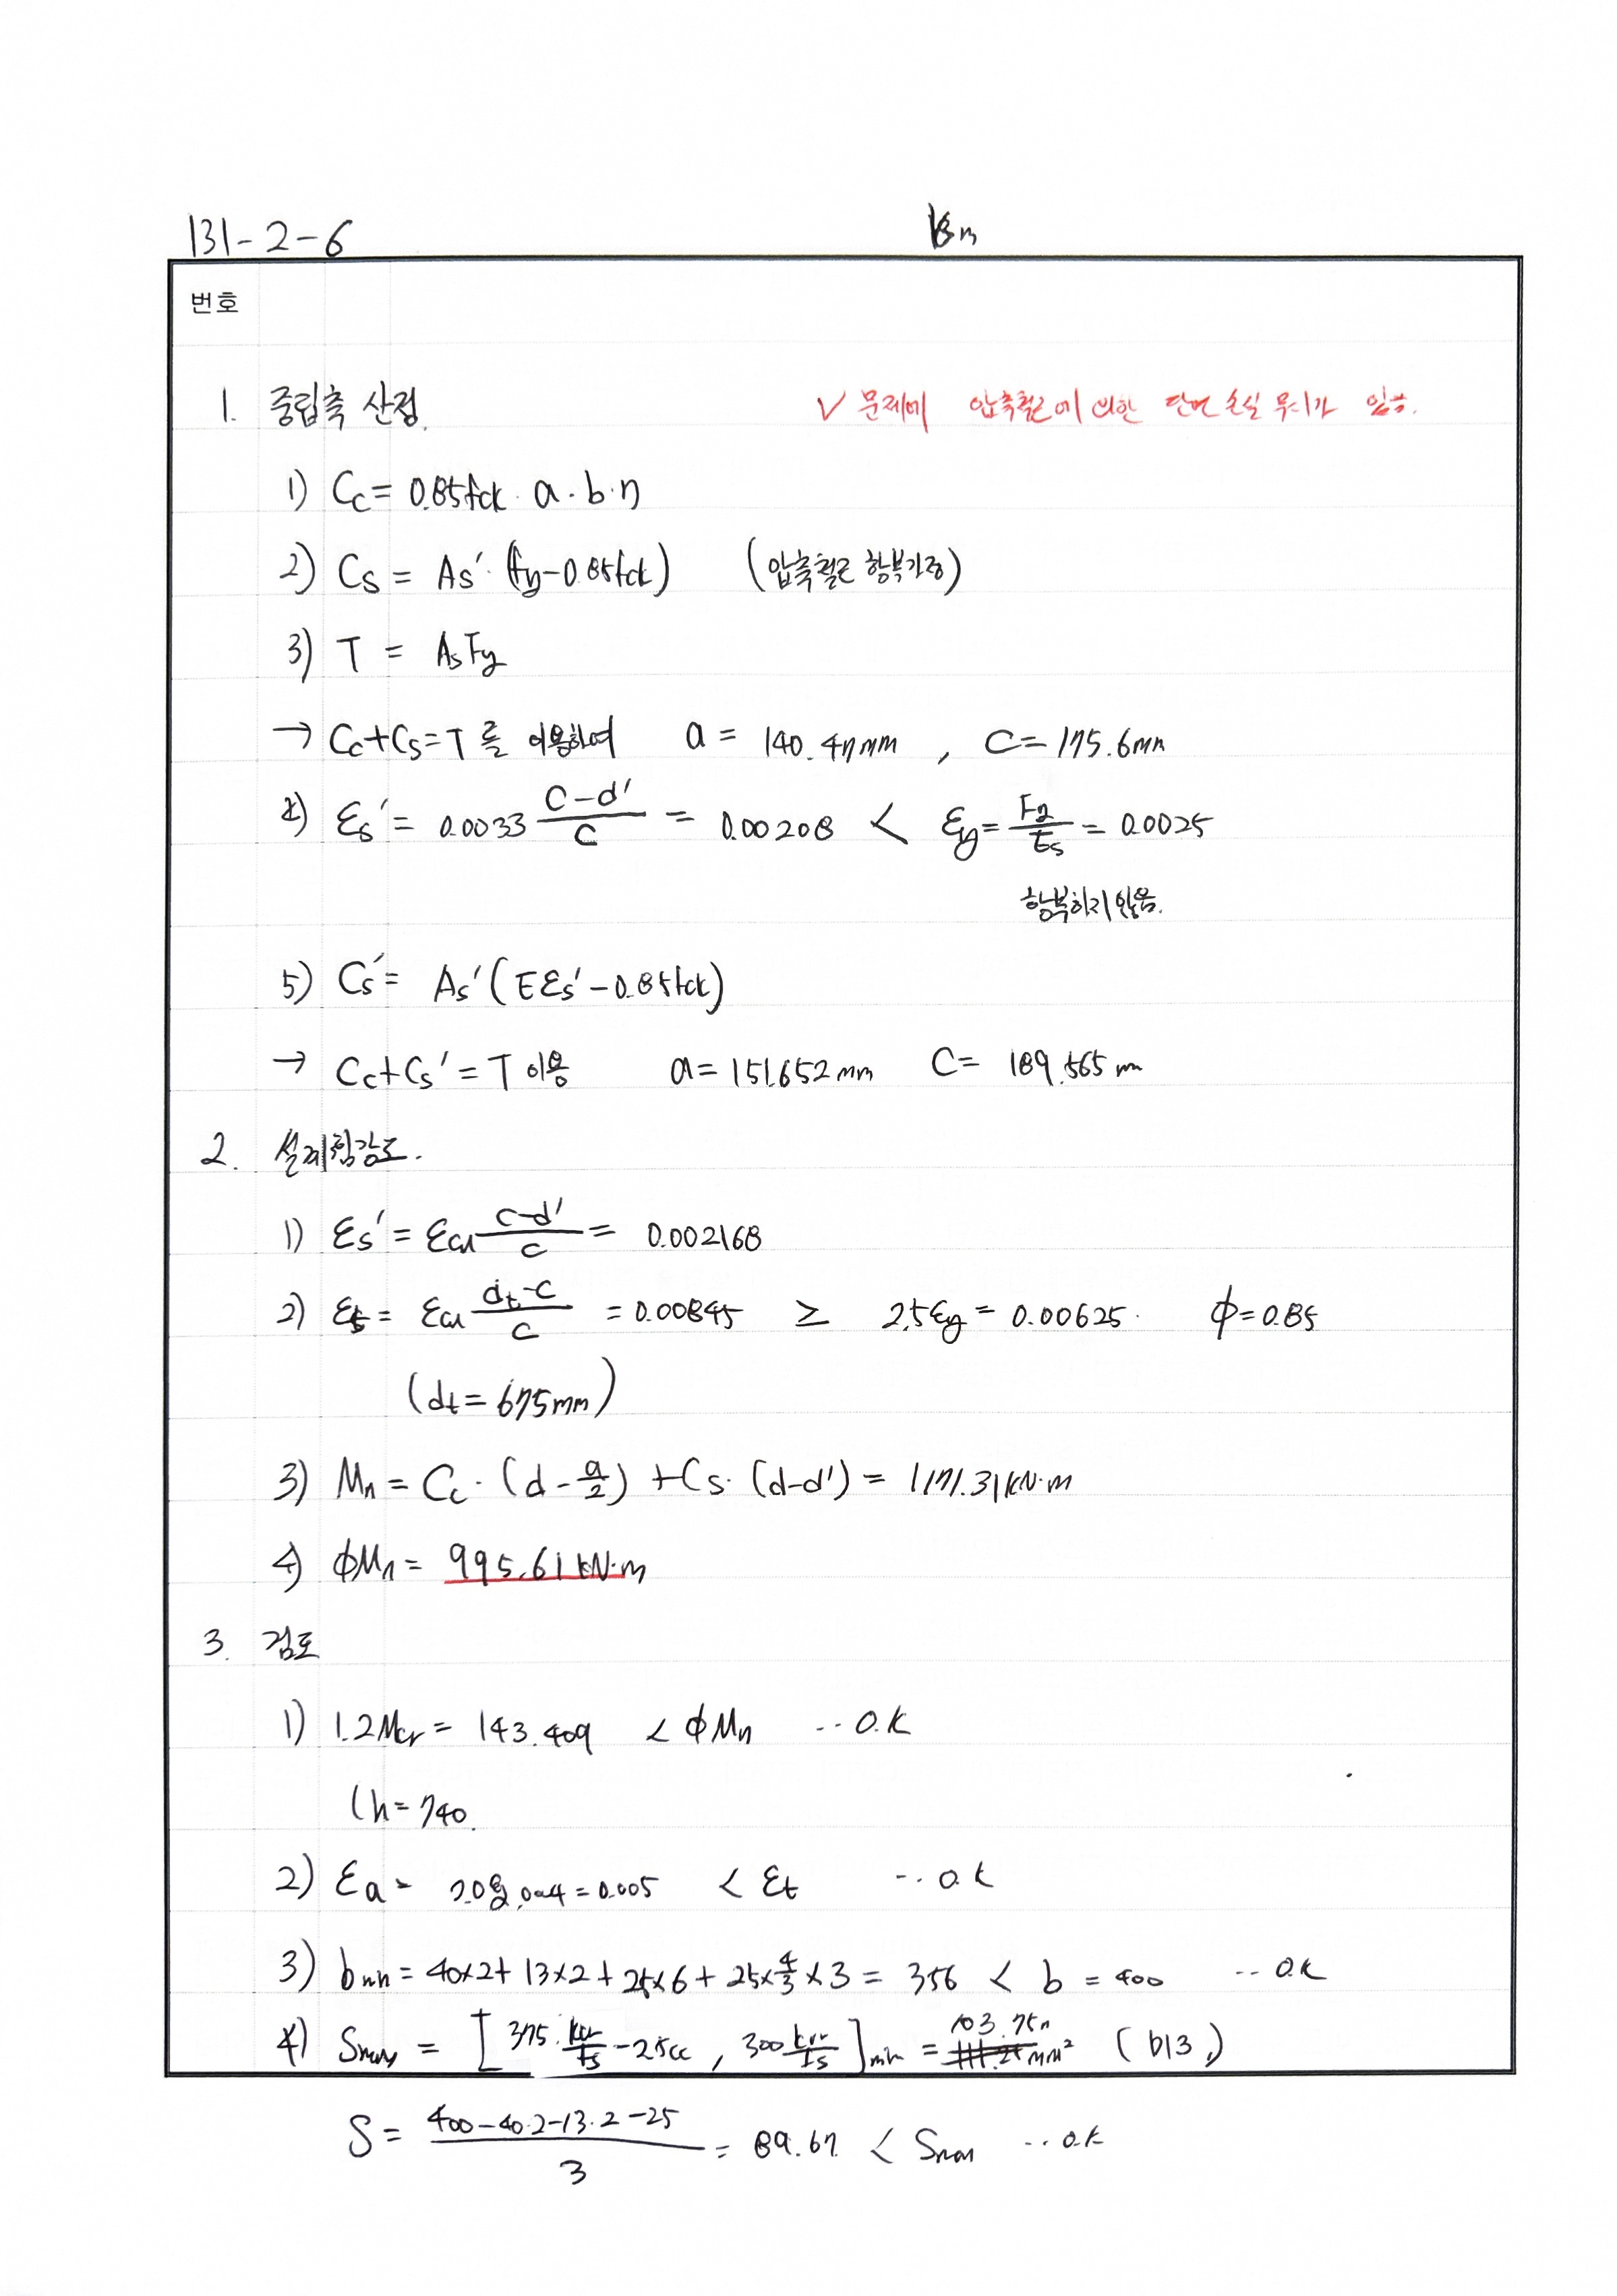 131-2-6
번호
1. 중립축 산정. ✓ 문제에 압축철근에 의한 단면 손실 무시가 있음.
1) Cc = 0.85fck · a · b · η
2) Cs = As' · (fy-0.85fck) (압축철근 항복가정)
3) T = AsFy
→ Cc+Cs=T 를 이용하여 a = 140.47mm , C = 175.6mm
4) εs' = 0.0033 (C-d')/C = 0.00208 < εy = Fy/Es = 0.0025
항복하지 않음.
5) Cs' = As'(Eεs'-0.85fck)
→ Cc+Cs' = T 이용 a = 151.652mm C = 189.565 m
2. 설계휨강도.
1) εs' = εcu (c-d')/c = 0.002168
2) εt = εcu (dt-c)/c = 0.00845 ≥ 2.5εy = 0.00625. φ = 0.85
(dt = 675mm)
3) Mn = Cc · (d-a/2) + Cs · (d-d') = 1171.31kN·m
4) φMn = 995.61kN·m
3. 검토
1) 1.2Mcr = 143.409 < φMn ·· O.K
(h=740.
2) εa = = 0.005 < εt ·· O.K
3) bmin = 40×2+13×2+25×6+25×4/3×3 = 356 < b = 400 ·· O.K
4) Smax = [375 · kcr/fs - 2.5cc , 300 kcr/fs]min = 103.75 mm² (D13)
S = (400-40·2-13·2-25)/3 = 89.67. < Smax ·· O.K